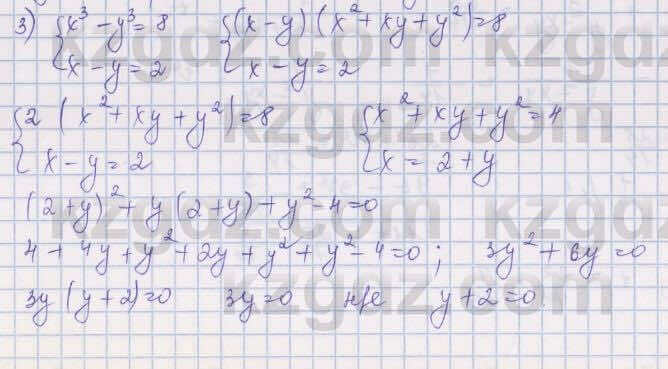 3) { x³ - y³ = 8   { (x - y) (x² + xy + y²) = 8
{ x - y = 2   { x - y = 2
{ 2 (x² + xy + y²) = 8   { x² + xy + y² = 4
{ x - y = 2   { x = 2 + y
(2 + y)² + y (2 + y) + y² - 4 = 0
4 + 4y + y² + 2y + y² + y² - 4 = 0 ; 3y² + 6y = 0
3y (y + 2) = 0   3y = 0   н/е   y + 2 = 0
kzgaz.com